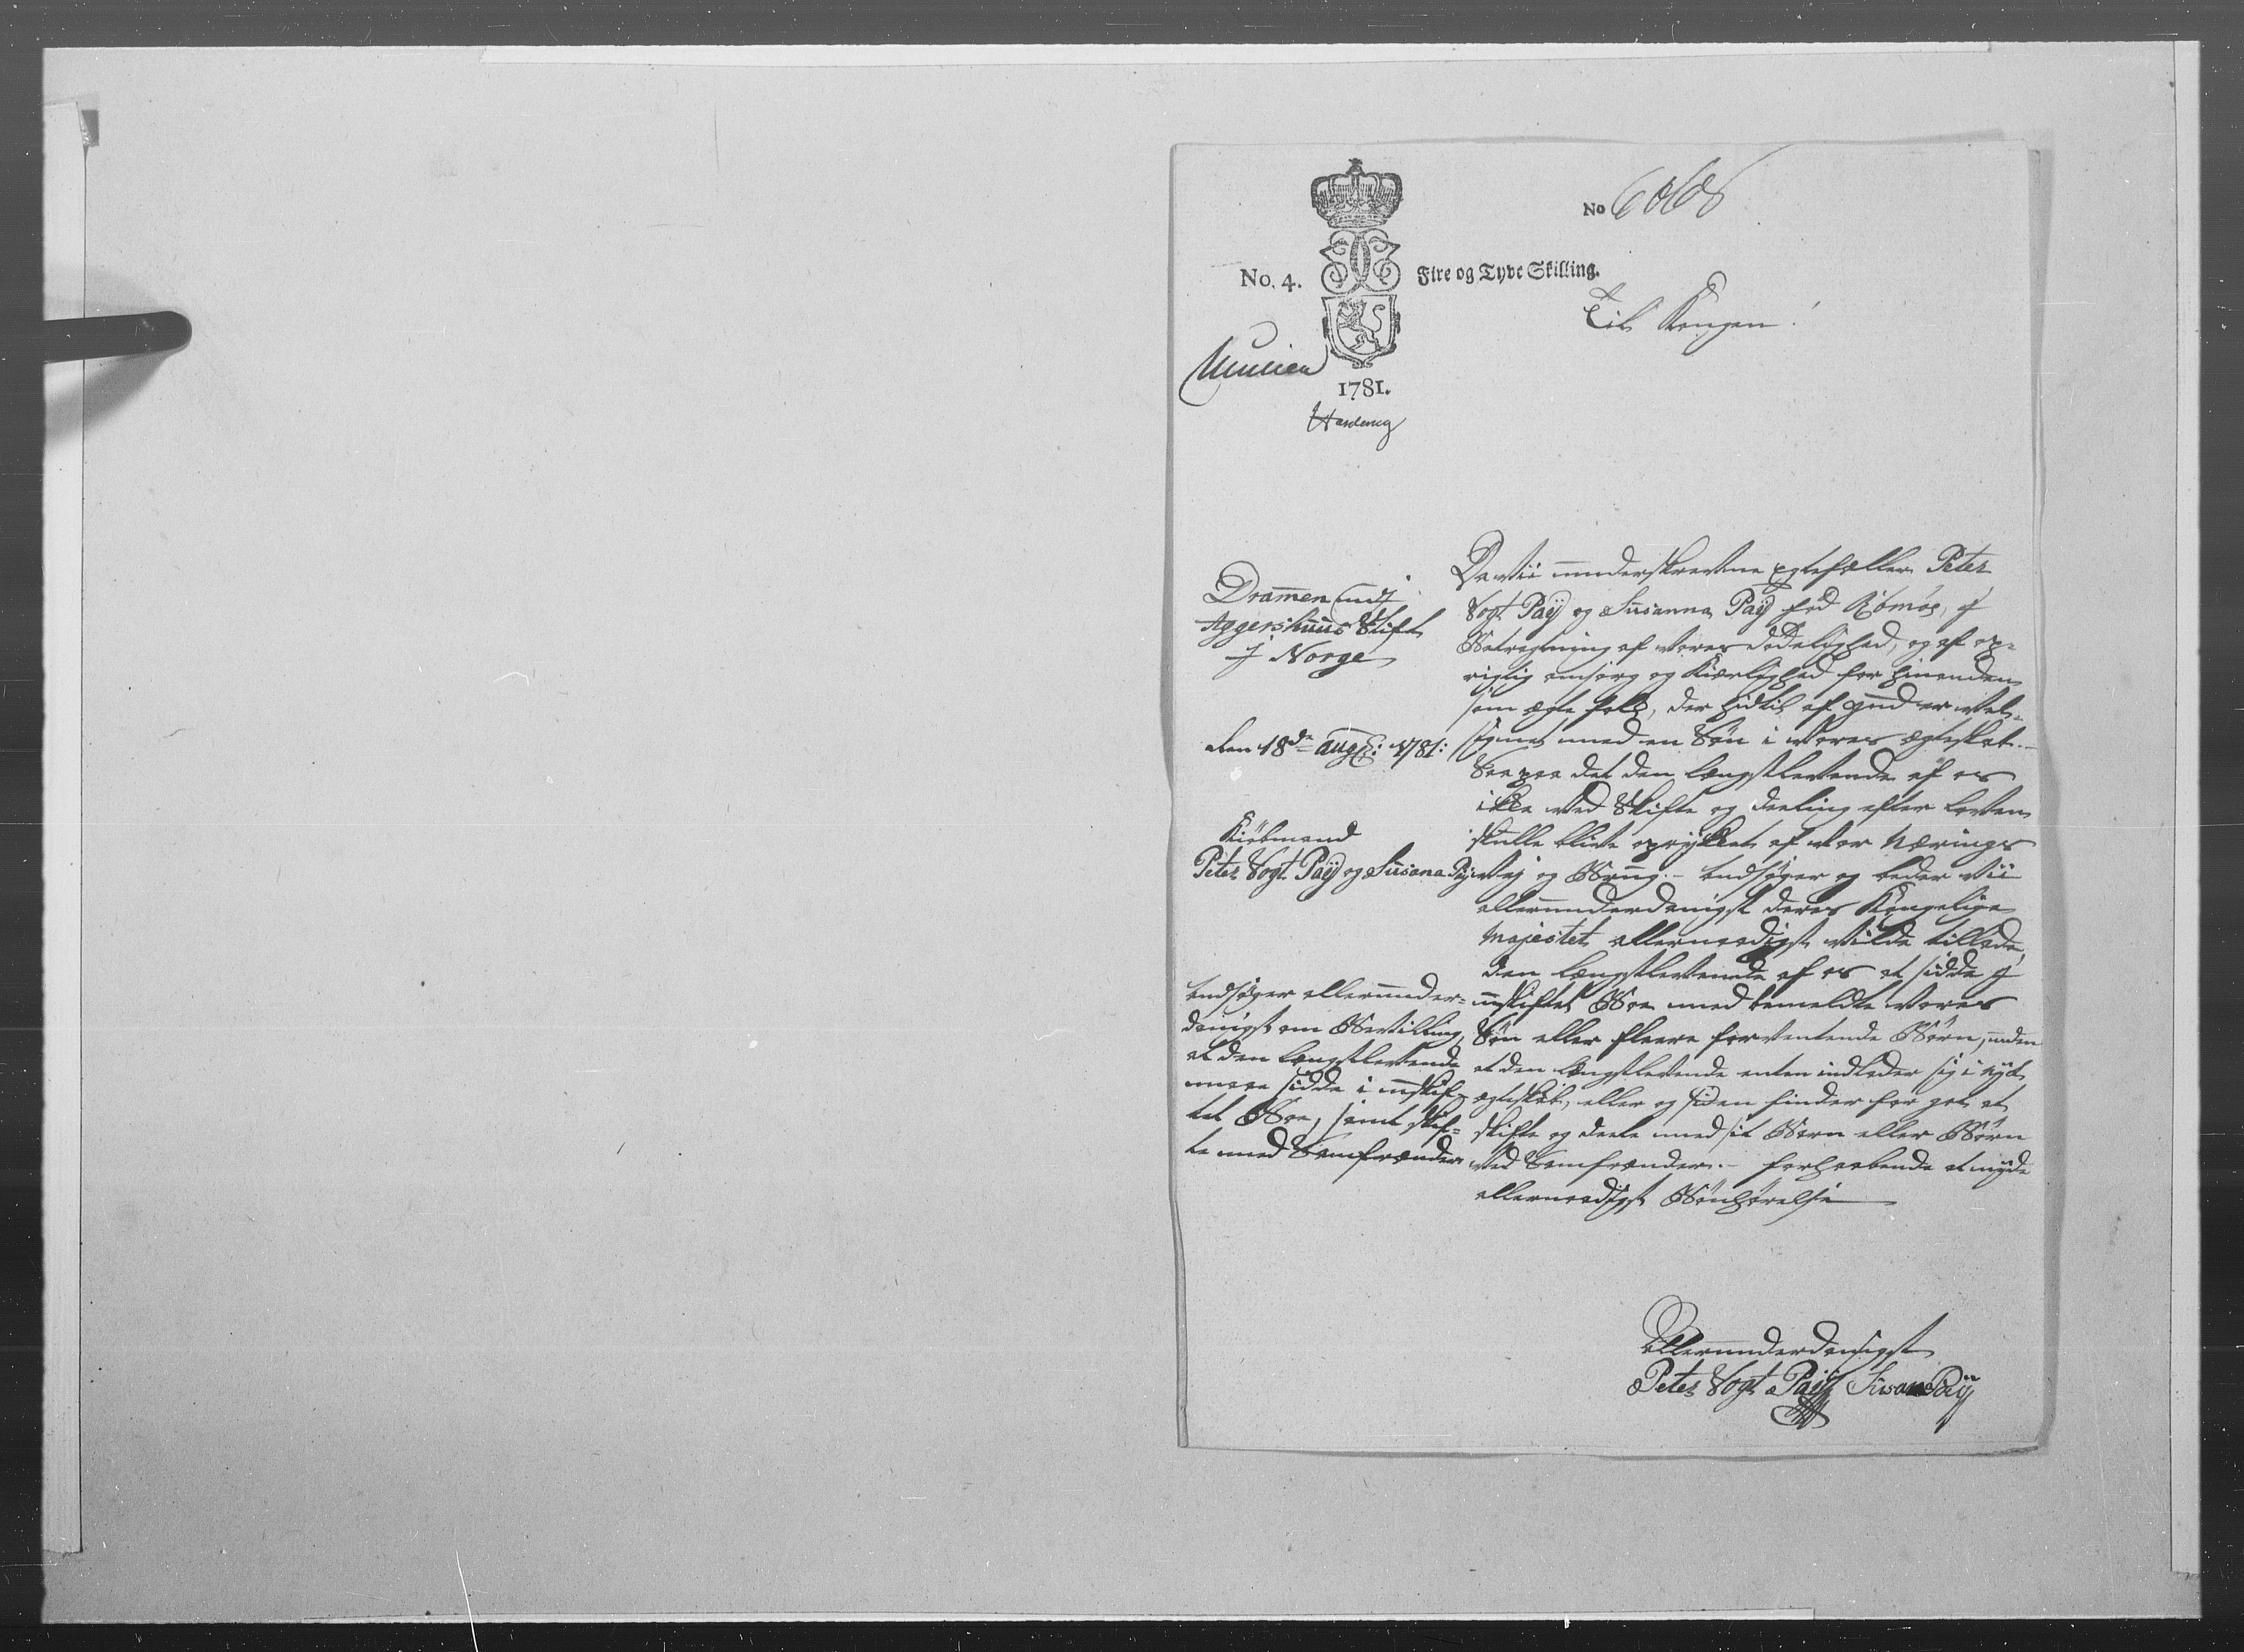 No 6868
No. 4.
Fire og Tyve Skilling.
Til Kongen!
1781.
Dramen udj
Aggershuus Stift
J Norge
den 18de Aug: 1781:
Kiöbmand
Peter Vogt Paÿ og Susana Paÿ
andsøger allerunder-
danigst om Bevilling,
at den længstlevende
maae sidde i uskif-
tet Boe, samt skif-
te med Samfrænder
Da vii underskrevne Egtefæller Peter
Vogt Paÿ og Susanna Paÿ fød
Betragtning af vores dødelighed, og af op-
rigtig omsorg og Kierlighed for hinanden
som ægte folk, der hidtil af gud er vel-
signet med en Søn i vores ægteskab.-
Saa paa det den længstlevende af os
ikke ved Skifte og deeling efter loven
skulle blive oprykket af vor Nærings
Vej og Brug.- andsøger og beder vii
allerunderdanigst deres Kongelige
Majestet allernaadigst vilde tillade,
den længstlevende af os at sidde j
uskiftet Boe med bemeldte vores
Søn eller fleere forventende Børn, uden
at den længstlevende enten indlader sig i nÿt
egteskab, eller og siden finder for got at
skifte og deele med sit Barn eller Børn
ved Samfrænder.- forhaabende at nÿde
allernaadigst Bønhørelse
Allerunderdanigst
Peter Vogt Paÿ Susana Paÿ